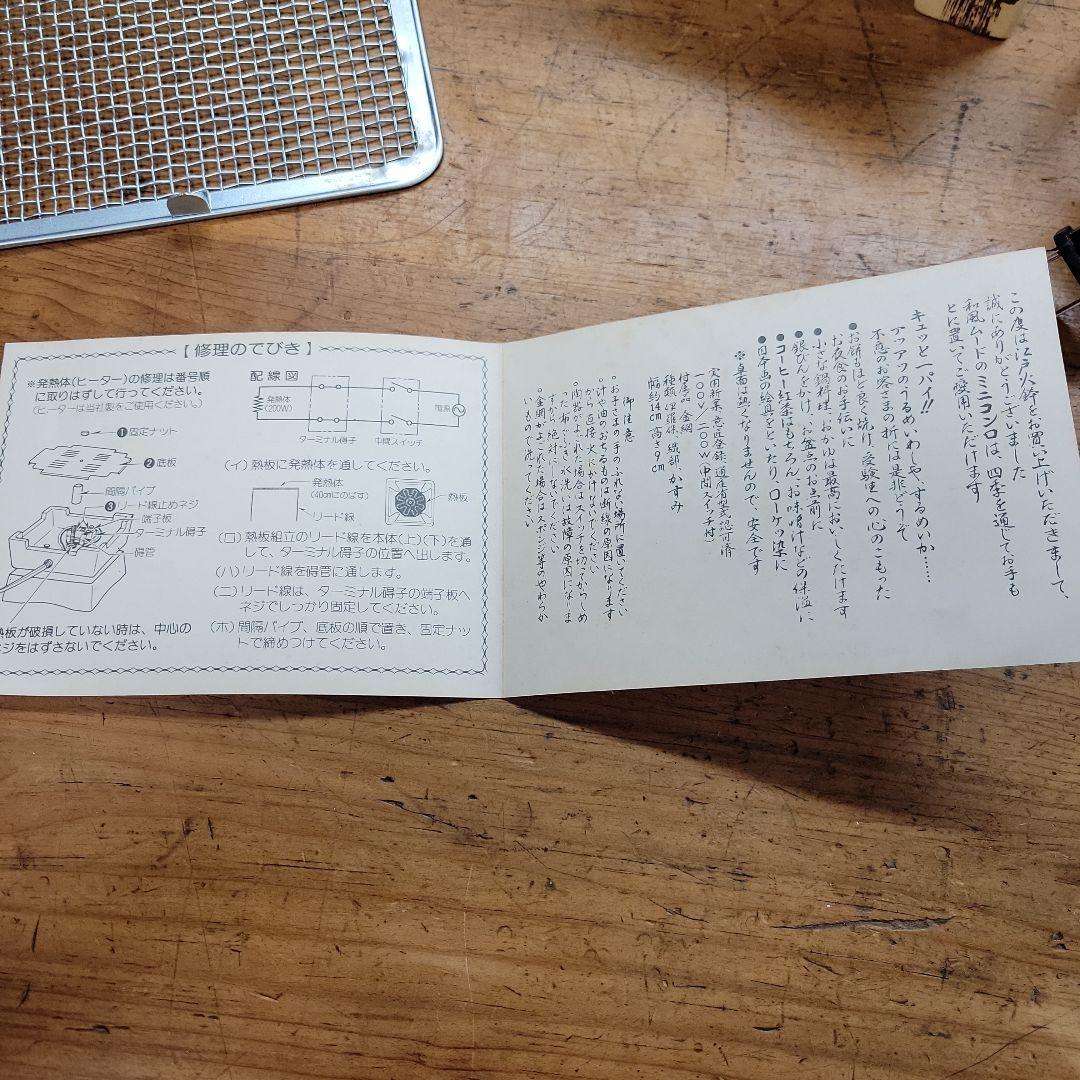 【修理のてびき】
※発熱体(ヒーター)の修理は番号順
に取りはずして行ってください。
(ヒーターは当社製をご使用ください。)
❶固定ナット
❷底板
間隔パイプ
❸リード線止めネジ
端子板
ターミナル碍子
碍管
熱板が破損していない時は、中心の
ネジをはずさないでください。
配線図
発熱体
(200W)
電源
ターミナル碍子
中間スイッチ
(イ)熱板に発熱体を通してください。
発熱体
(40cmにのばす)
リード線
熱板
(ロ)熱板組立のリード線を本体(上)(下)を通
して、ターミナル碍子の位置へ出します。
(ハ)リード線を碍管に通します。
(ニ)リード線は、ターミナル碍子の端子板へ
ネジでしっかり固定してください。
(ホ)間隔パイプ、底板の順で置き、固定ナッ
トで締めつけてください。
この度は江戸火鉢をお買い上げいただきまして、
誠にありがとうございました
和風ムードのミニコンロは、四季を通じてお手も
とに置いてご愛用いただけます
キュッと一パイ!!
アッアツのうるめいわしや、するめいか……
不意のお客さまの折には是非どうぞ
●お餅もほど良く焼け、受験生への心のこもった
お夜食のお手伝いに
●小さな鍋料理、おかゆは最高においしくたけます
●銀びんをかけ、お盆点のお点前に
●コーヒー紅茶はもちろん、お味噌汁などの保温に
●日本画の絵具をといたり、ローケツ染に
※卓面は熱くなりませんので、安全です
実用新案、意匠登録、通産省型式認可済
100V/200W(中間スイッチ付)
付属品 金網
種類 伊羅保、織部、かすみ
幅約14cm 高さ9cm
御注意
●お子さまの手のふれない場所に置いてください
●汁や油のおちるものは断線の原因になります
から直接火にかけないでください
●陶器がよごれた場合はスイッチを切ってからしめ
った布でふき、水洗いは故障の原因になりま
すから絶対にしないでください
●金網がよごれた場合はスポンジ等のやわらか
いもので洗ってください